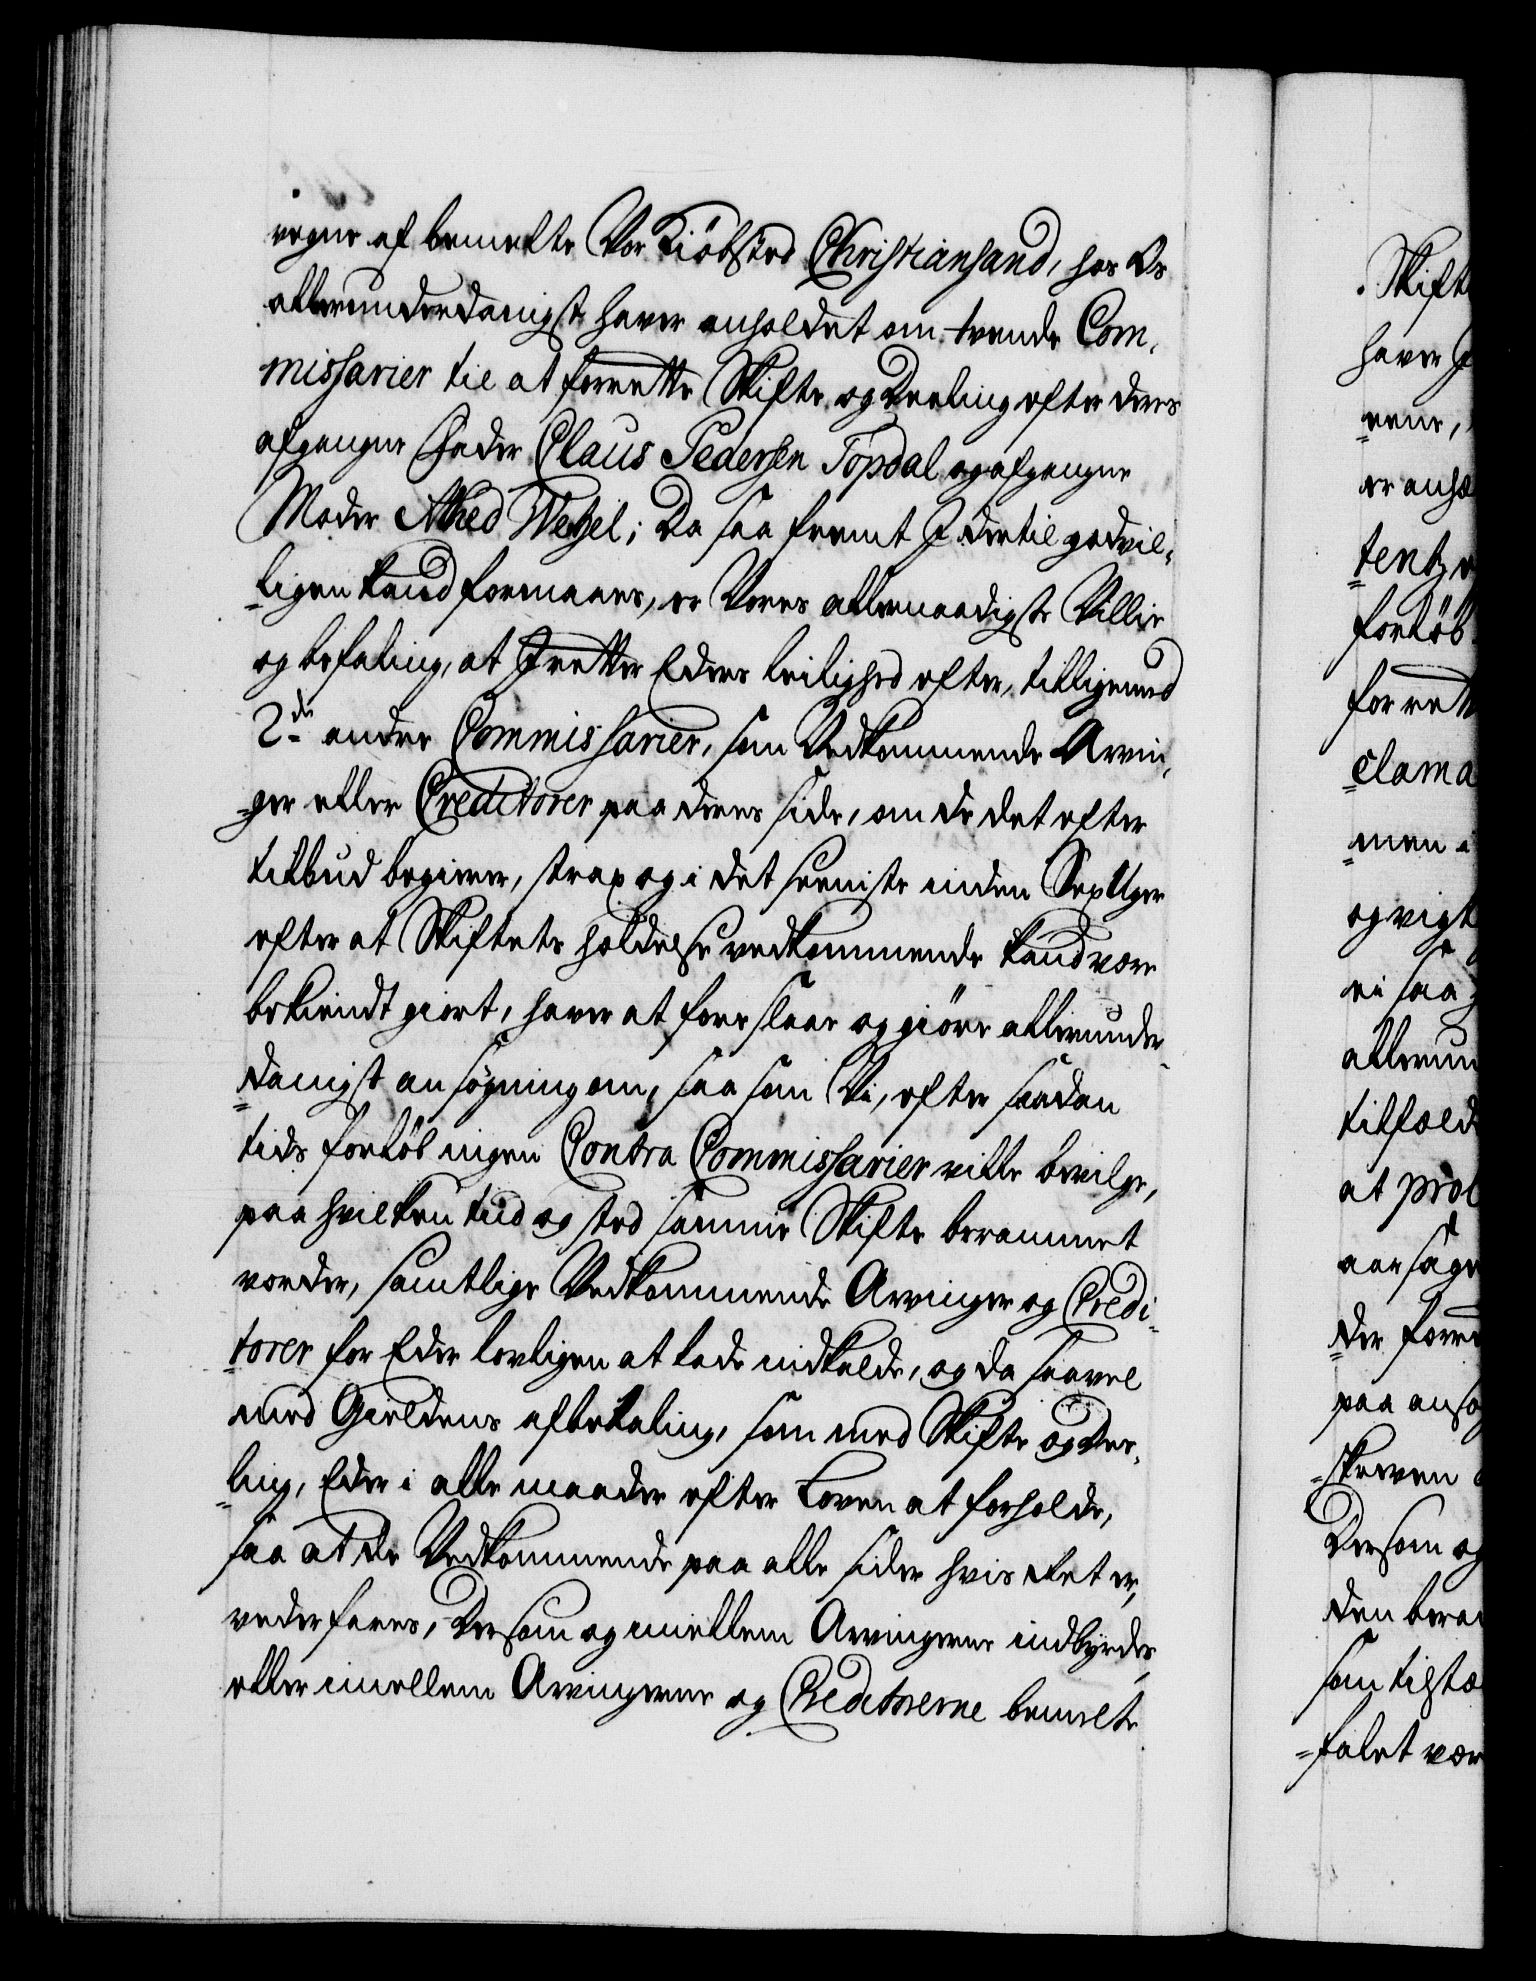 vegne af bemelte Vor Kiöbsted Christiansand, hos Os
allerunderdanigst haver anholdet om tvende Com¸
missarier til at forrette Skifte og Deeling efter deres
afgangne Fader Claus Pedersen Topdal og afgangne
Moder Alhed Wetzel; Da saa fremt I dertil godvil¸
=ligen kand formaaes, er Vores allernaadigste Villie
og befaling, at I retter Eders leilighed efter, tilligemed
2de andre Commissarier, som Vedkommende Arvin¸
=ger eller Creditorer paa deres side, om de det efter
tilbud begierer, strax og i det seeniste inden Sex Uger
efter at Skiftets holdelse vedkommende kand være
bekiendt giort, haver at foreslaae og giöre allerunder¸
=danigst ansögning om, saa som Vi, efter saadan
tids forlöb ingen Contra Commissarier ville bevilge,
paa hvilken tiid og sted samme Skifte berammet
vorder, samtlige Vedkommende Arvinger og Credi¸
=torer for Eder lovligen at lade indkalde, og da saavel
med Gieldens afbetaling, som med Skifte og Dee¸
=ling, Eder i alle maader efter Loven at forholde,
saa at de Vedkommende paa alle sider hvis Ret er,
vederfares, Dersom og imellem Arvingerne indbyrdes,
eller imellem Arvingerne og Creditorerne bemelte
Skift
haver I
=eene,
er anhæ
=tentz
forlöb
forrett
=clama
=men i
og vigt
ei saa
allerun
tilfæld
at prol
aarsage
=der forr
paa ansö
=skreven
Dersom og
den bera
som tilstæ
=falet vær